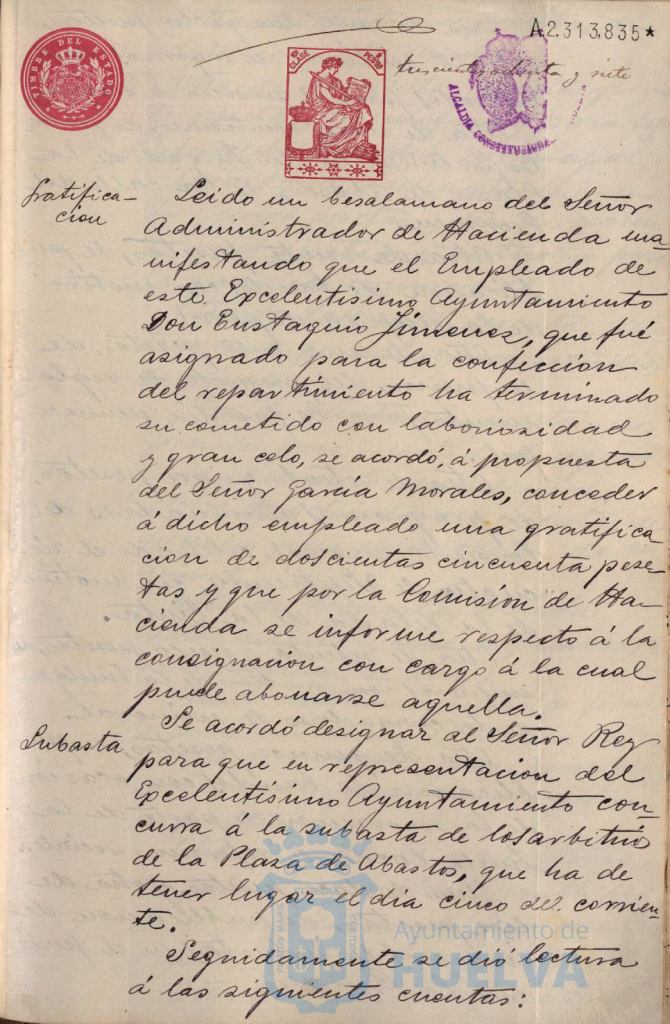 A.2.313.835★
TIMBRE DEL ESTADO
CLASE
PESETAS
trescientos ochenta y siete
ALCALDIA CONSTITUCIONAL
Gratifica-
cion
Leido un besalamano del Señor
Administrador de Hacienda ma-
nifestando que el Empleado de
este Excelentisimo Ayuntamiento
Don Eustaquio Jimenez, que fué
asignado para la confeccion
del repartimiento ha terminado
su cometido con laboriosidad
y gran celo, se acordó, á propuesta
del Señor García Morales, conceder
á dicho empleado una gratifica-
cion de doscientas cincuenta pese-
tas y que por la Comision de Ha-
cienda se informe respecto á la
consignacion con cargo á la cual
puede abonarse aquella.
Subasta
Se acordó designar al Señor Rey
para que en representacion del
Excelentisimo Ayuntamiento con-
curra á la subasta de los arbitrios
de la Plaza de Abastos, que ha de
tener lugar el dia cinco del corrien-
te.
Seguidamente se dió lectura
á las siguientes cuentas:
Ayuntamiento de
HUELVA